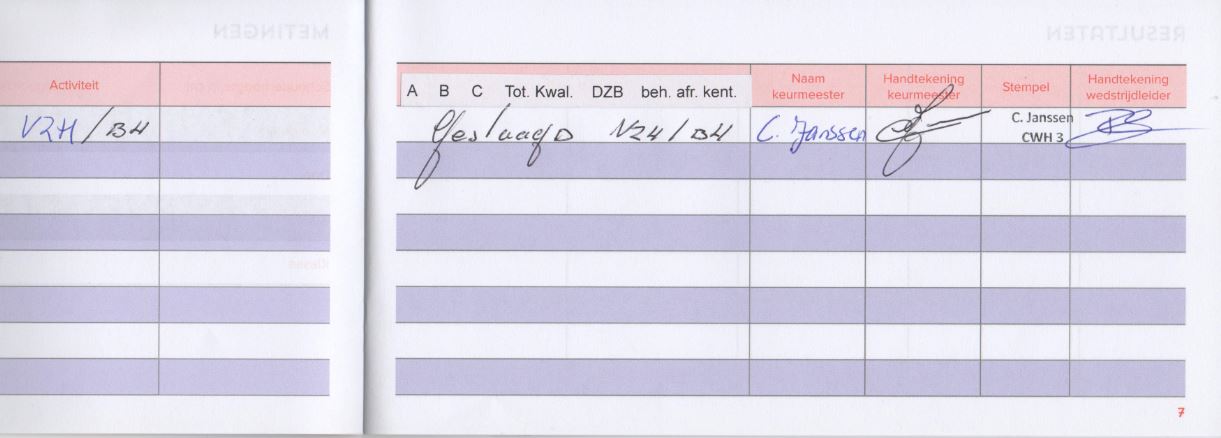 METINGEN
RESULTATEN
Activiteit
A B C Tot. Kwal. DZB beh. afr. kent.
Naam keurmeester
Handtekening keurmeester
Stempel
Handtekening wedstrijdleider
VZH/BH
Geslaagd VZH/BH
C. Janssen
C. Janssen
CWH 3
Klasse
7